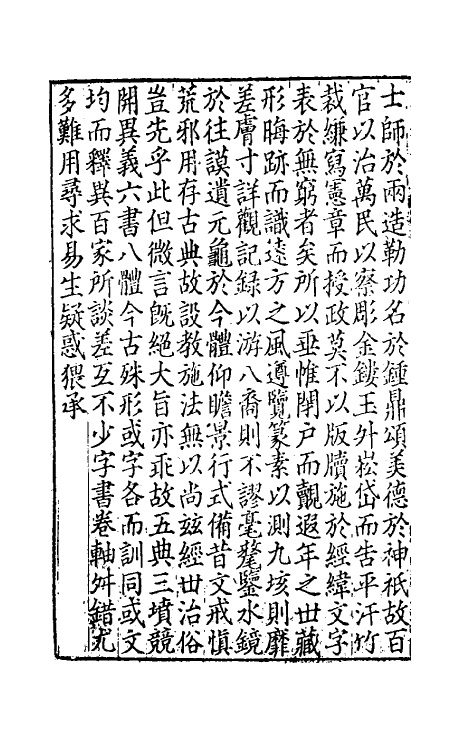 士師於兩造勒功名於鍾鼎頌美德於神祇故百
官以治萬民以察彫金鏤玉外崧岱而告平汗竹
裁縑寫憲章而授政莫不以版牘施於經緯文字
表於無窮者矣所以垂帷閉户而覿遐年之世藏
形晦跡而識遠方之風遵覽篆素以測九垓則靡
差膚寸詳觀記録以游八裔則不謬毫氂鑒水鏡
於往謨遺元龜於今體仰瞻景行式備昔文戒慎
荒邪用存古典故設教施法無以尚玆經世治俗
豈先乎此但微言既絶大旨亦乖故五典三墳競
開異義六書八體今古殊形或字各而訓同或文
均而釋異百家所談差互不少字書卷軸舛錯尤
多難用尋求易生疑惑猥承